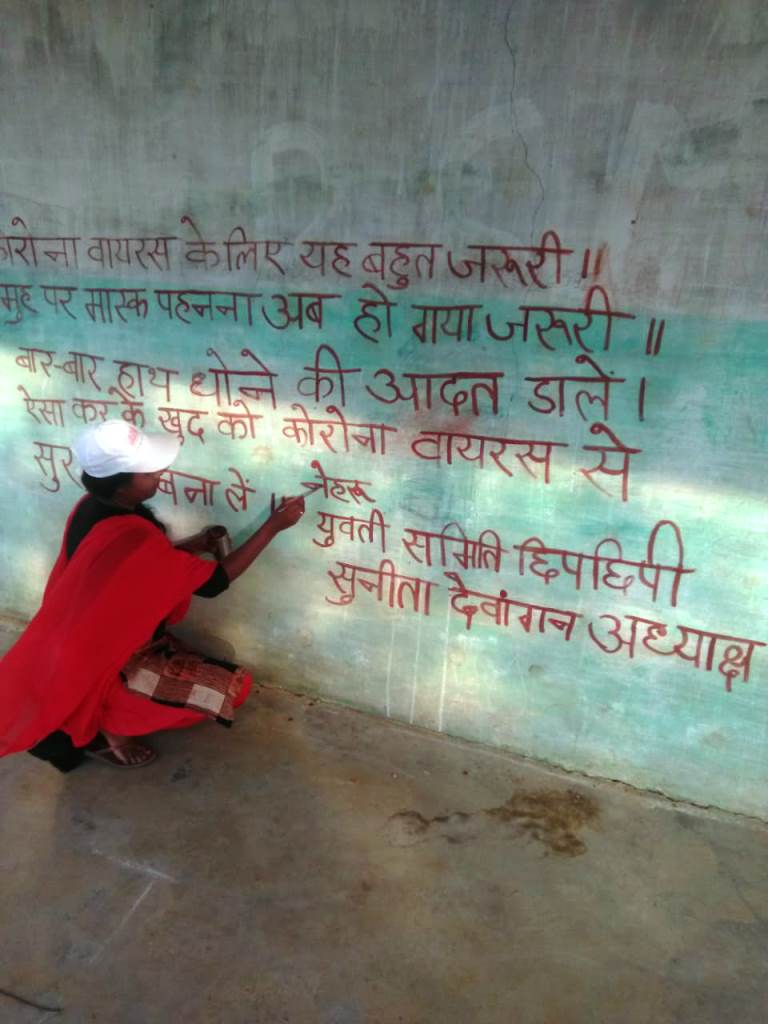 कोरोना वायरस के लिए यह बहुत जरूरी ॥
मुह पर मास्क पहनना अब हो गया जरूरी ॥
बार-बार हाथ धोने की आदत डालें ।
ऐसा कर के खुद को कोरोना वायरस से
बना लें ॥
नेहरू
युवती समिति छिपछिपी
सुनीता देवांगन अध्याक्ष